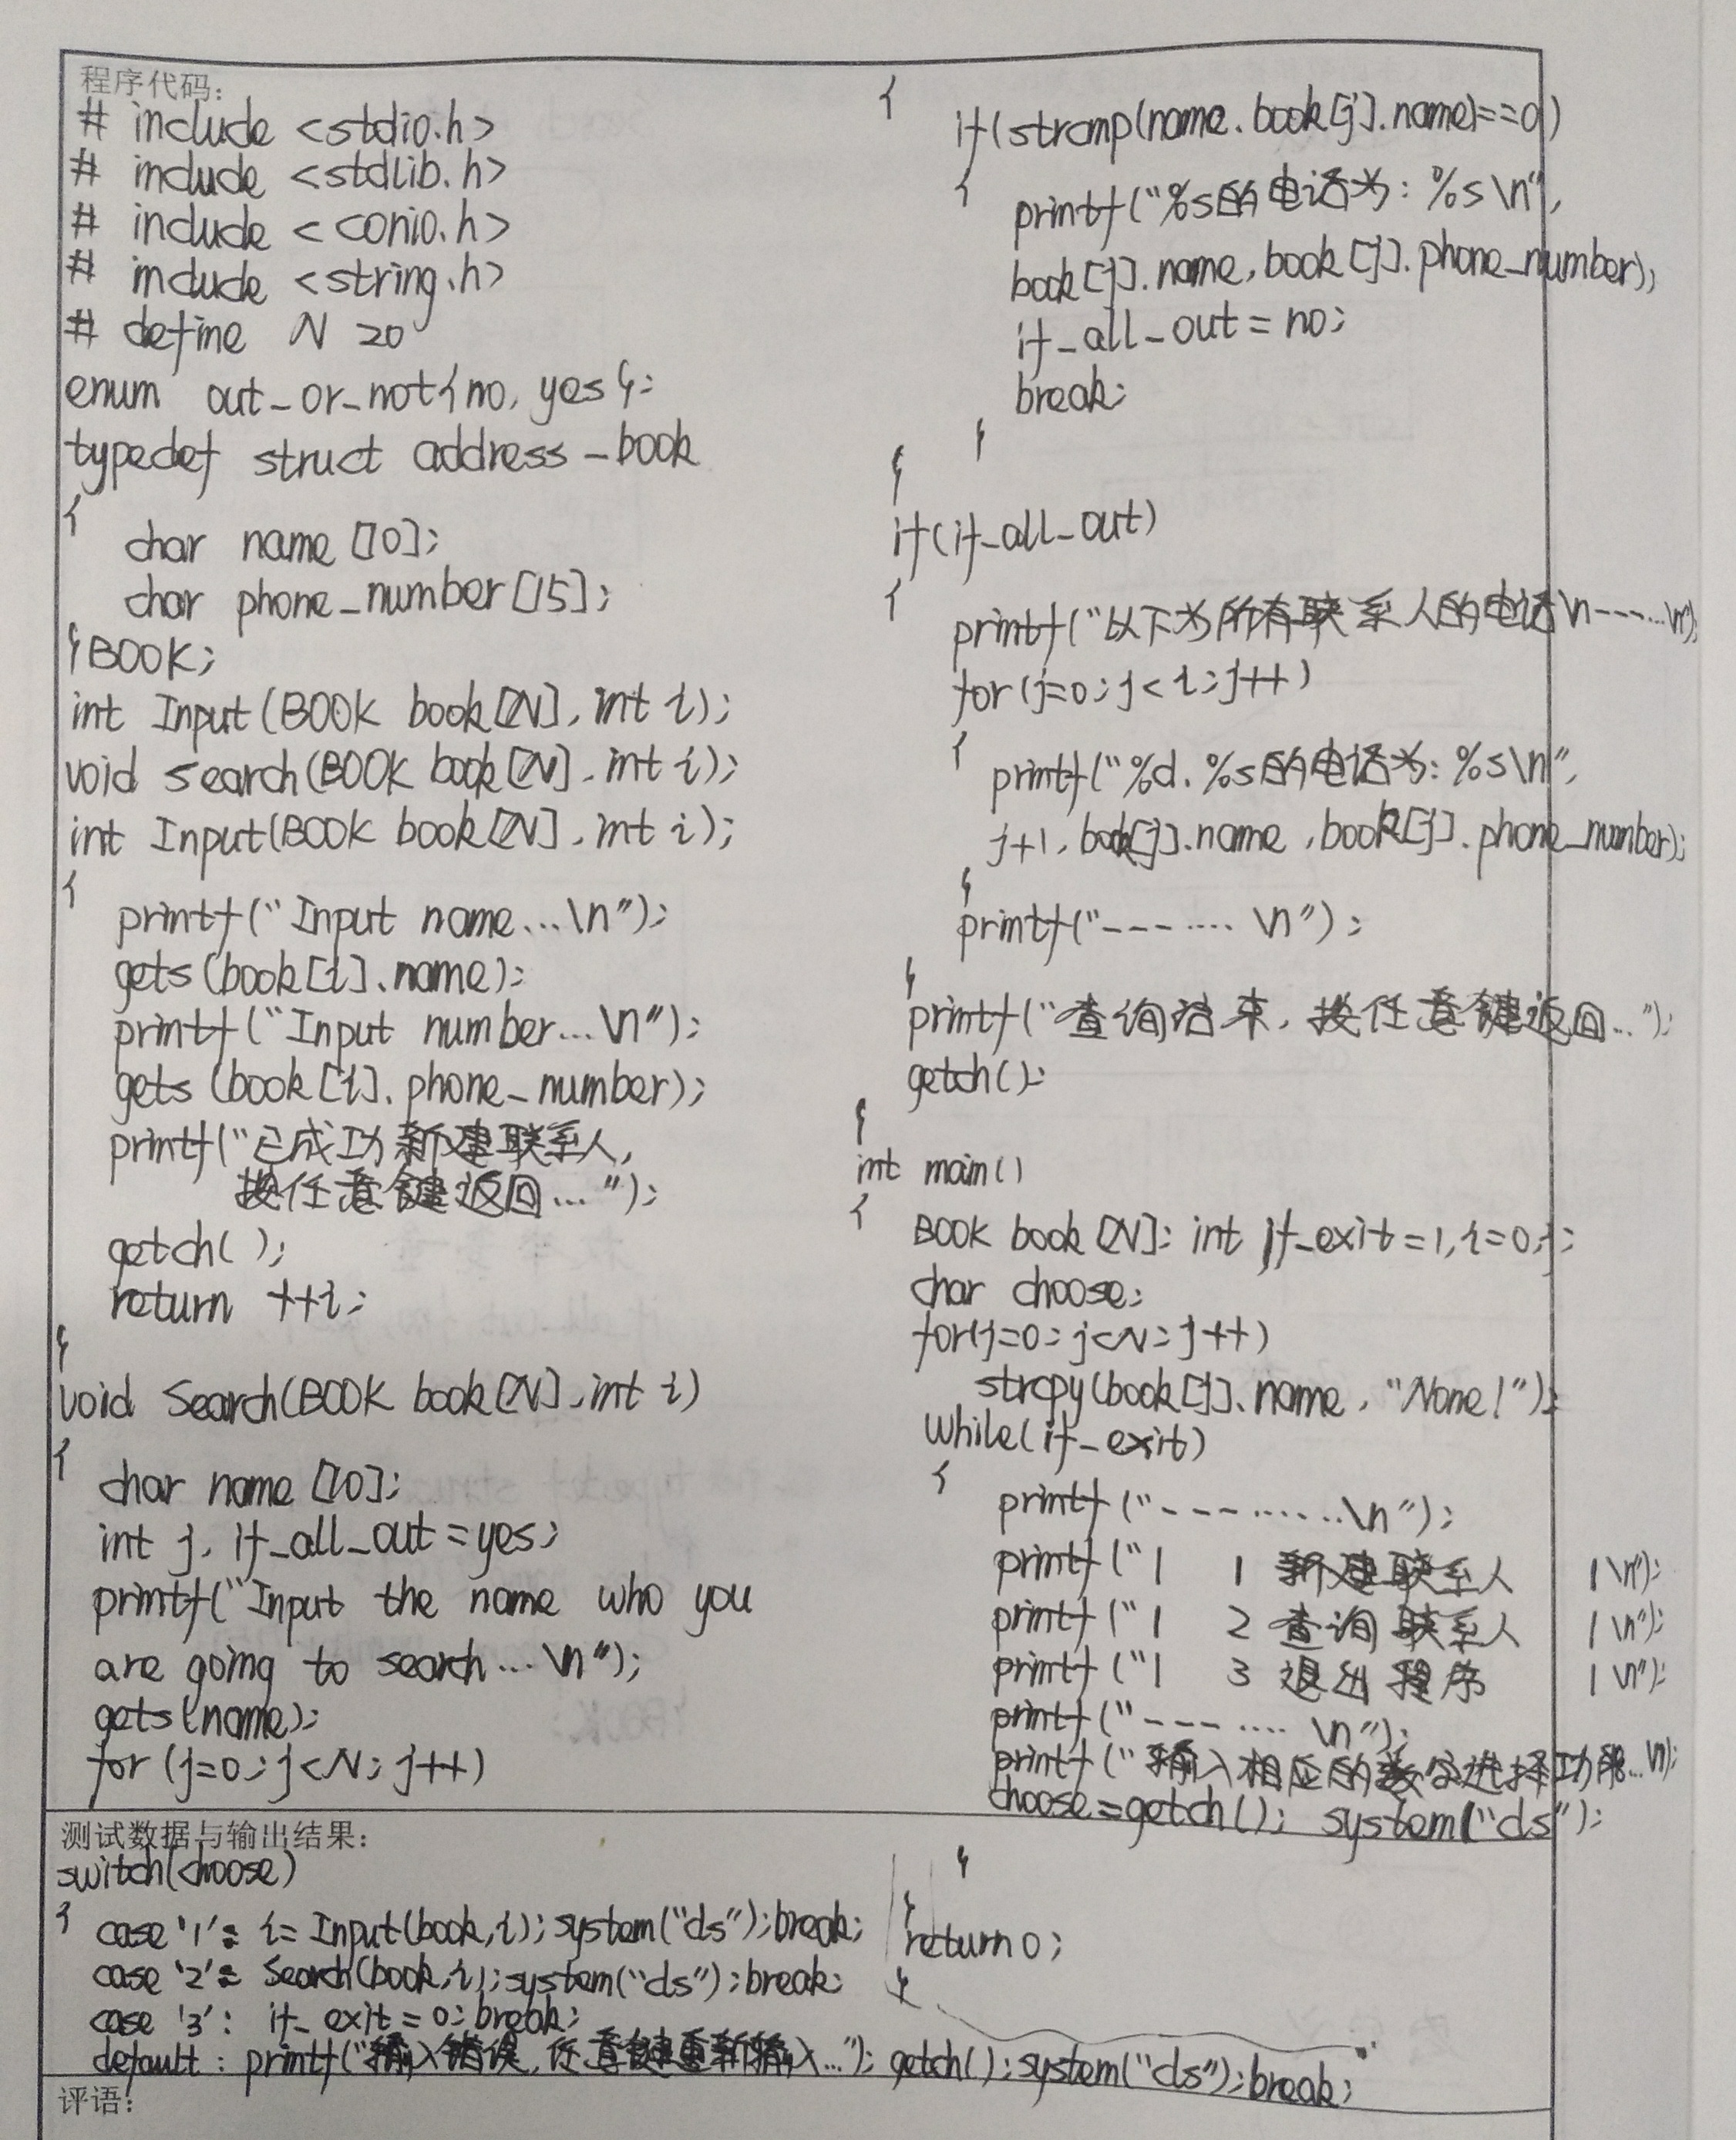 程序代码:
# include <stdio.h>
# include <stdlib.h>
# include <conio.h>
# include <string.h>
# define N 20
enum out_or_not{no, yes};
typedef struct address_book
{
char name [10];
char phone_number[15];
}BOOK;
int Input(BOOK book[N], int i);
void Search(BOOK book[N], int i);
int Input(BOOK book[N], int i);
{
printf("Input name...\n");
gets(book[i].name);
printf("Input number...\n");
gets(book[i].phone_number);
printf("已成功新建联系人,
按任意键返回...");
getch( );
return ++i;
}
void Search(BOOK book[N], int i)
{
char name [10];
int j, if_all_out=yes;
printf("Input the name who you
are going to search...\n");
gets(name);
for (j=0; j<N; j++)
{
if(strcmp(name, book[j].name)==0)
{
printf("%s的电话为: %s\n",
book[j].name, book[j].phone_number);
if_all_out=no;
break;
}
}
if(if_all_out)
{
printf("以下为所有联系人的电话\n---...\n");
for(j=0; j<i; j++)
{
printf("%d. %s的电话为: %s\n",
j+1, book[j].name, book[j].phone_number);
}
printf("---.... \n");
}
printf("查询结束, 按任意键返回...");
getch();
}
int main()
{
BOOK book[N]; int if_exit=1,i=0,j;
char choose;
for(j=0; j<N; j++)
strcpy(book[j].name, "None!");
while(if_exit)
{
printf("---......\n");
printf("| 1 新建联系人 |\n");
printf("| 2 查询联系人 |\n");
printf("| 3 退出程序 |\n");
printf("---.... \n");
printf("输入相应的数字选择功能...\n");
choose=getch(); system("cls");
测试数据与输出结果:
switch(choose)
{
case '1': i=Input(book,i); system("cls"); break;
case '2': Search(book,i); system("cls"); break;
case '3': if_exit=0; break;
default: printf("输入错误, 任意键重新输入..."); getch(); system("cls"); break;
}
}
return 0;
}
评语: